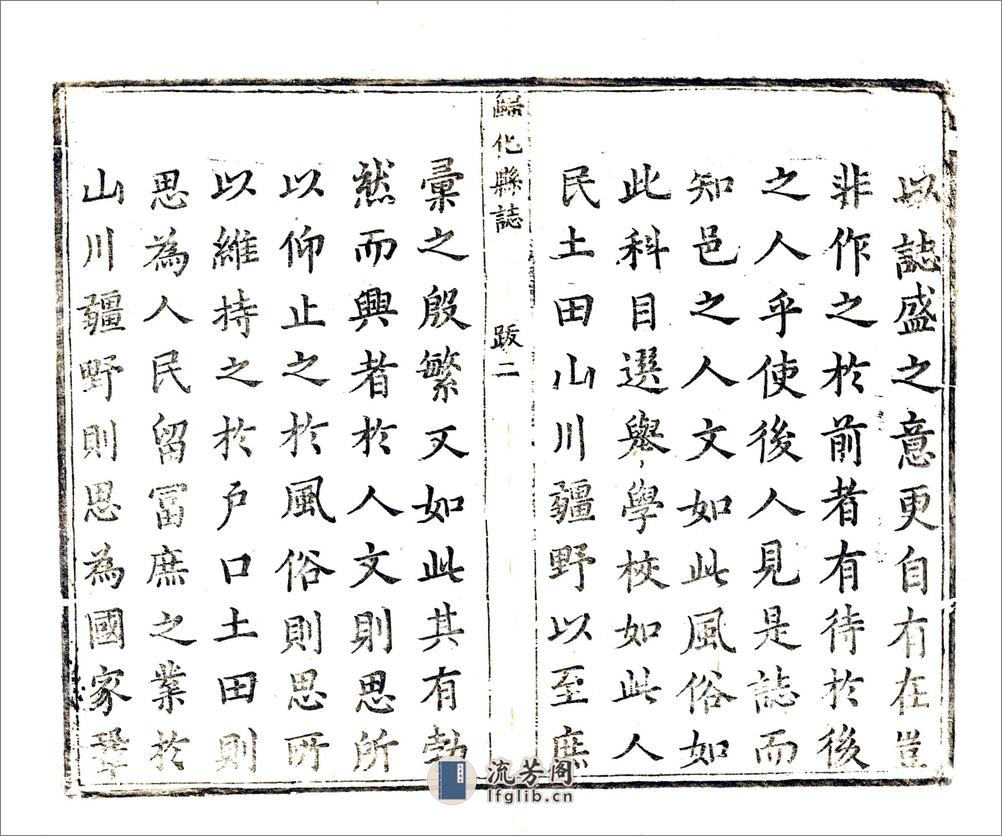 以誌盛之意更自有在豈
非作之於前者有待於後
之人乎使後人見是誌而
知邑之人文如此風俗如
此科目選舉學校如此人
民土田山川疆野以至庶
歸化縣誌 跋二
彚之殷繁又如此其有勃
然而興者於人文則思所
以仰止之於風俗則思所
以維持之於戶口土田則
思為人民留冨庶之業於
山川疆野則思為國家鞏
流芳阁
lfglib.cn